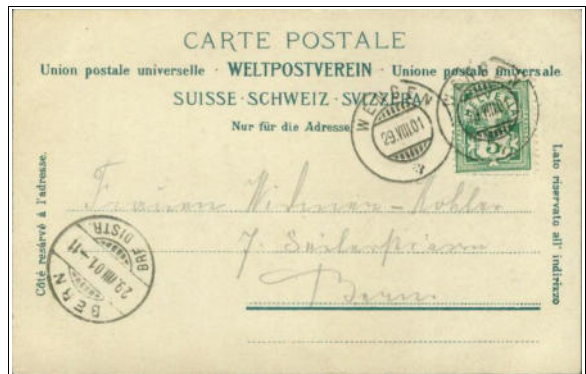 CARTE POSTALE
Union postale universelle · WELTPOSTVEREIN · Unione postale universale
SUISSE · SCHWEIZ · SVIZZERA
Nur für die Adresse
29.VIII.01
HELVETIA
5
Côté reservé à l'adresse.
Lato riservato all' indirizzo
7.
Bern
BERN
29.VIII.01.-11
BRF. DISTR.